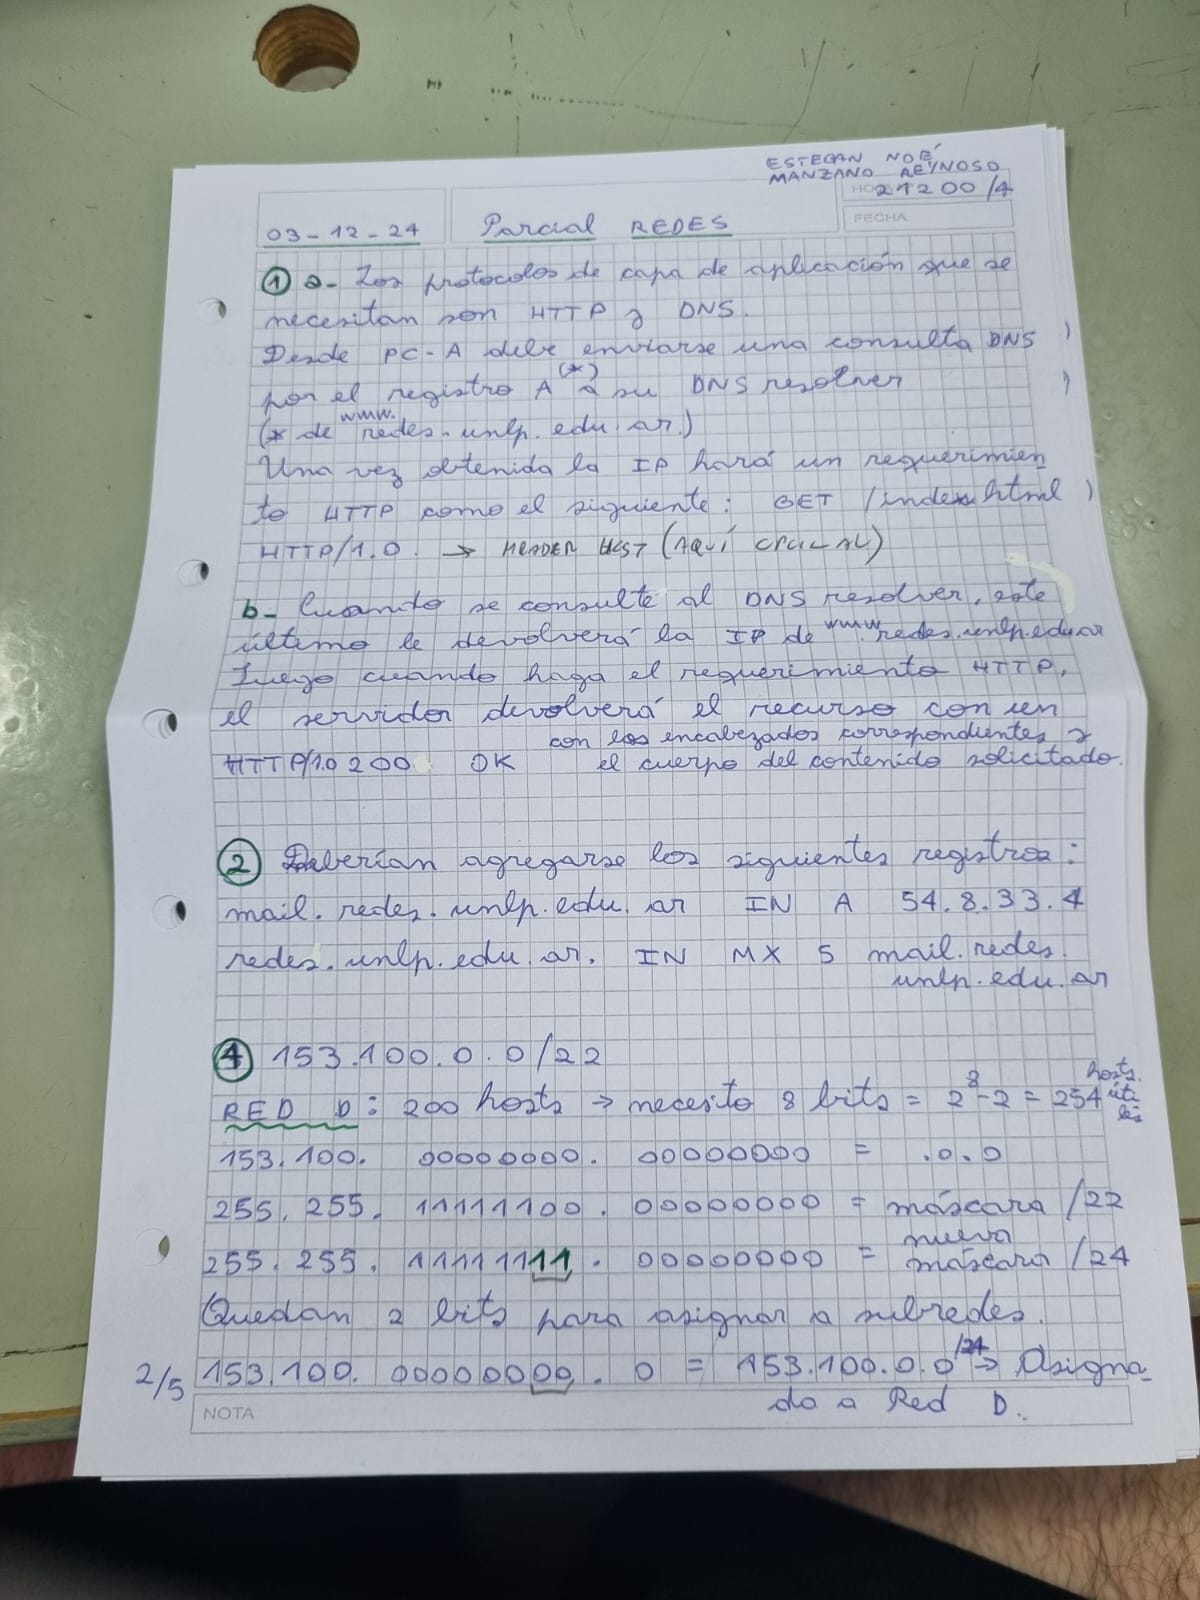 ESTEBAN NOÉ
MANZANO REYNOSO
21200/4
FECHA
03-12-24 Parcial REDES
① a- Los protocolos de capa de aplicación que se
necesitan son HTTP y DNS.
Desde PC-A debe enviarse una consulta DNS
por el registro A (*) a su DNS resolver
(* de www.redes.unlp.edu.ar.)
Una vez obtenida la IP hará un requerimien
to HTTP como el siguiente: GET /index.html
HTTP/1.0 → HEADER HOST (AQUÍ CRUCIAL)
b- Cuando se consulte al DNS resolver, este
último le devolverá la IP de www.redes.unlp.edu.ar
Luego cuando haga el requerimiento HTTP,
el servidor devolverá el recurso con un
HTTP/1.0 200 OK con los encabezados correspondientes y
el cuerpo del contenido solicitado.
② Deberían agregarse los siguientes registros:
mail.redes.unlp.edu.ar IN A 54.8.33.4
redes.unlp.edu.ar. IN MX 5 mail.redes.
unlp.edu.ar
④ 153.100.0.0/22
RED D: 200 hosts → necesito 8 bits = 2⁸-2 = 254 hosts útiles
153.100. 00000000. 00000000 = .0.0
255.255. 11111100. 00000000 = máscara /22
255.255. 11111111. 00000000 = nueva máscara /24
Quedan 2 bits para asignar a subredes.
2/5 153.100. 00000000. 0 = 153.100.0.0/24 → Asigna
do a Red D.
NOTA